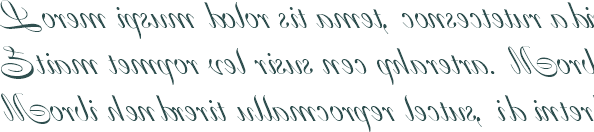 Lorem ipsum dolor sit amet, consectetur adi
Etiam tempor vel risus nec pharetra. Morb
Morbi hendrerit ullamcorper lectus, id interd